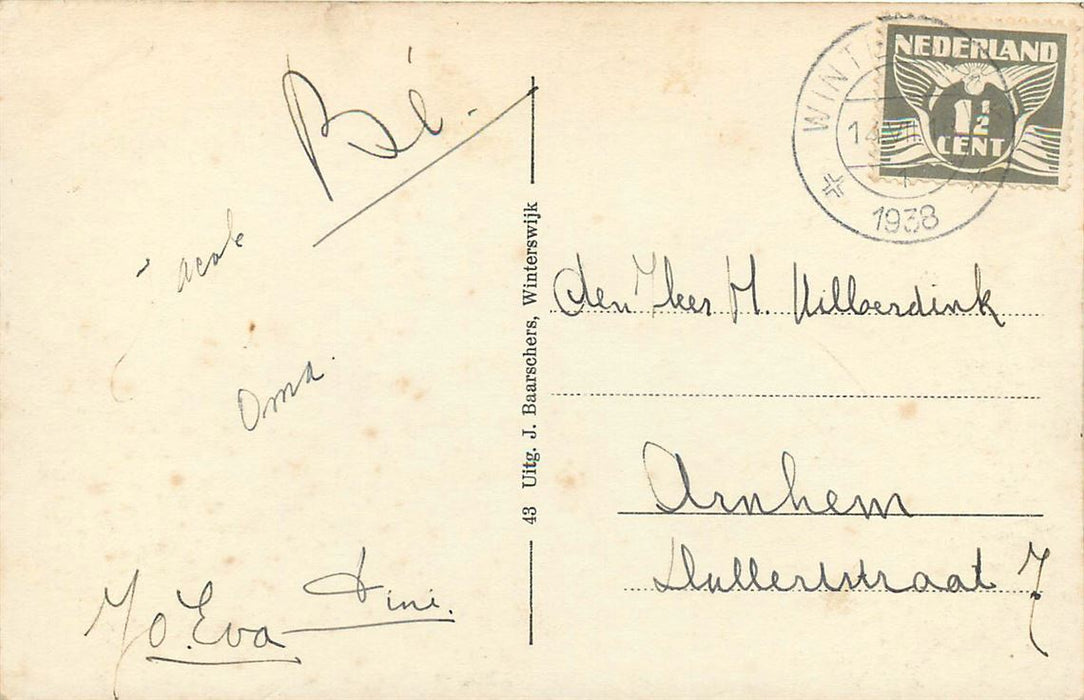 Bé.
Jacob
Oma.
Jo. Eva
Dini.
43 Uitg. J. Baarschers, Winterswijk
NEDERLAND
1½
CENT
1938
den Heer H. Wilberdink
Arnhem
Dullertstraat 7